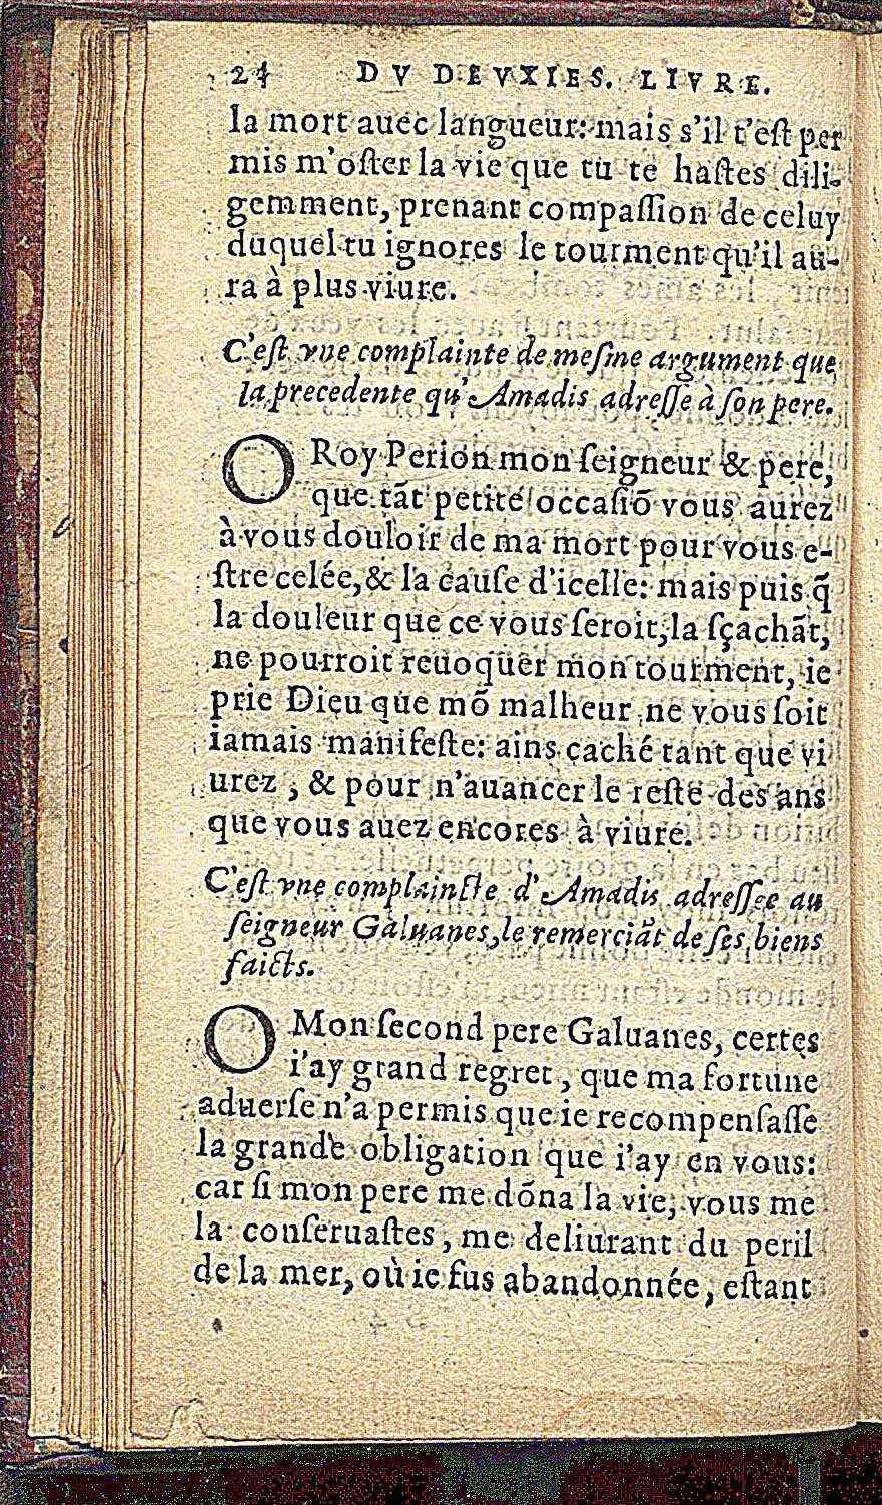 24 DV DEVXIES. LIVRE.
la mort auec langueur: mais s'il t'eſt per
mis m'oſter la vie que tu te haſtes dili-
gemment, prenant compaſſion de celuy
duquel tu ignores le tourment qu'il au-
ra à plus viure.
C'eſt vne complainte de meſme argument que
la precedente qu'Amadis adreſſe à ſon pere.
O Roy Perion mon ſeigneur & pere,
que tãt petite occaſiõ vous aurez
à vous douloir de ma mort pour vous e-
ſtre celée, & la cauſe d'icelle: mais puis q̃
la douleur que ce vous ſeroit, la ſçachãt,
ne pourroit reuoquer mon tourment, ie
prie Dieu que mõ malheur ne vous ſoit
iamais manifeſte: ains caché tant que vi
urez, & pour n'auancer le reſte des ans
que vous auez encores à viure.
C'eſt vne complaincte d'Amadis adreſſee au
ſeigneur Galuanes, le remerciãt de ſes biens
faicts.
O Mon ſecond pere Galuanes, certes
i'ay grand regret, que ma fortune
aduerſe n'a permis que ie recompenſaſſe
la grande obligation que i'ay en vous:
car ſi mon pere me dõna la vie, vous me
la conſeruaſtes, me deliurant du peril
de la mer, où ie fus abandonnée, eſtant